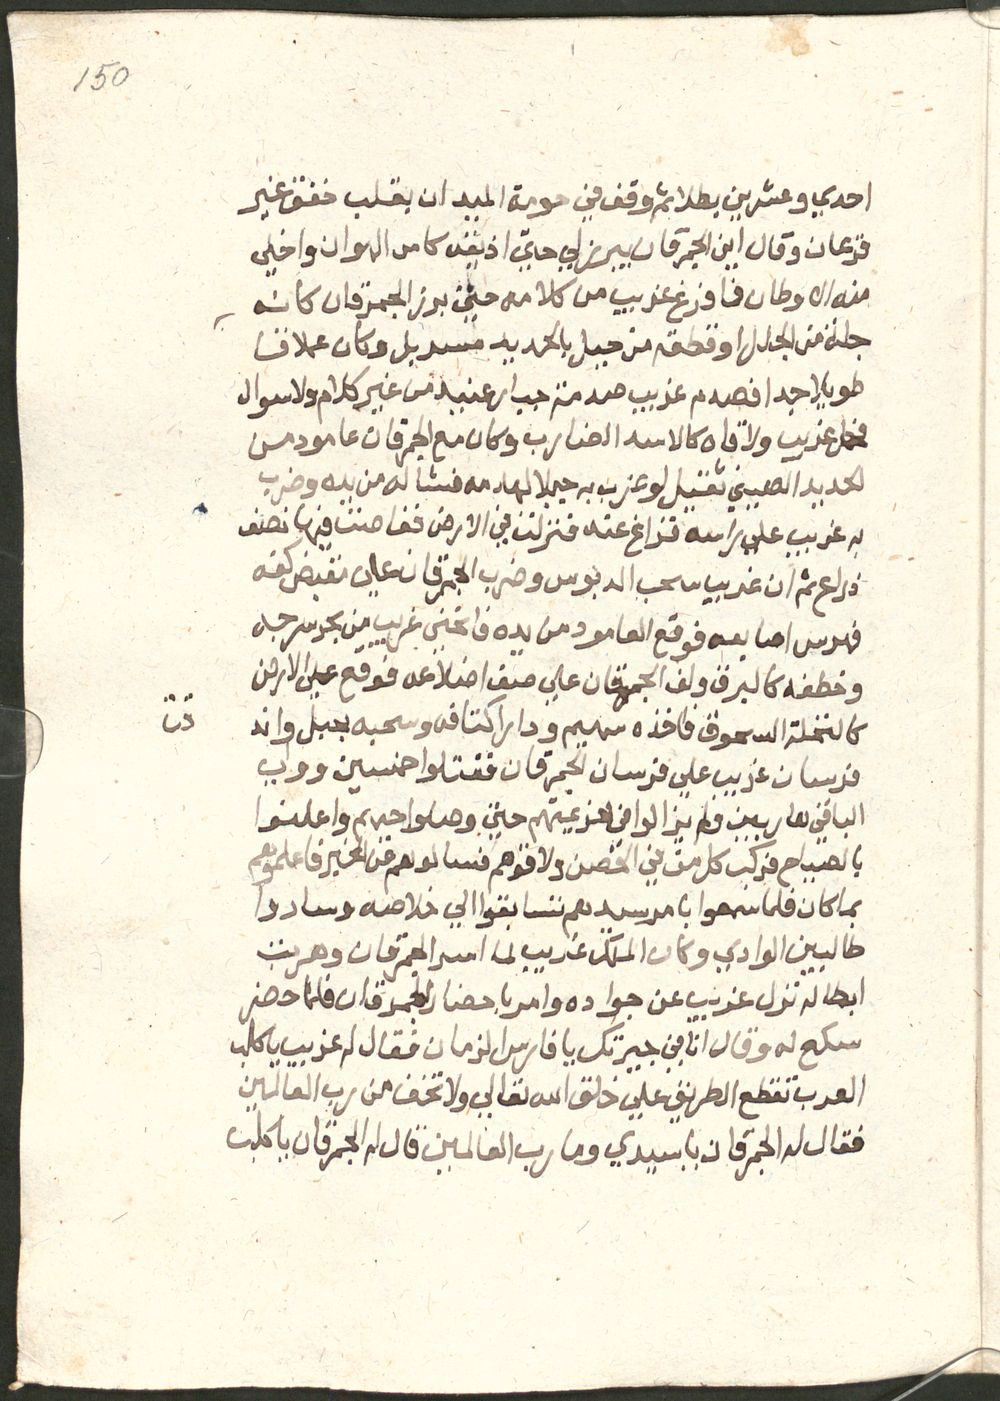 150
احدي وعشرين بطلا ثم وقف في حومة الميدان بقلب خفق غير
فزعان وقال اين الجمرقان يبرز لي حتي اذيقه كاس الهوان واخلي
منه الاوطان فما فرغ غريب من كلامه حتي برز الجمرقان كانه
جلة من الجلل او قطعه من جبل بالحديد مسربل وكان عملاقا
طويلا جدا فصدم غريب صدمة جبار عنيد من غير كلام ولا سوال
فحمل غريب ولاقاه كالاسد الضارب وكان مع الجمرقان عامود من
الحديد الصيني ثقيل لو ضرب به جبلا لهدمه فشاله من يده وضرب
به غريب علي راسه فزاغ عنه فنزلت في الارض فغاصت فيها نصف
ذراع ثم ان غريب سحب الدبوس وضرب الجمرقان علي مقبض كفه
فهرس اصابعه فوقع العامود من يده فانحني غريب من بحر سرجه
وخطفه كالبرق ولف الجمرقان علي صف اضلاعه فوقع علي الارض
كالنخلة السحوق فاخذه سهيم ودار اكتافه وسحبه بحبل واند
فرسان غريب علي فرسان الجمرقان فقتلوا خمسين وولب
الباقي هاربين ولم يزالوا في هزيمتهم حتي وصلوا حيهم واعلنوا
بالصياح فركب كل من في الحصن ولاقوهم فسالوهم عن الخبر فاعلموهم
بما كان فلما سمعوا باسر سيدهم تسابقوا الي خلاصه وساروا
طالبين الوادي وكان الملك غريب لما اسر الجمرقان وهربت
ابطاله نزل غريب عن جواده وامر باحضار الجمرقان فلما حضر
سكع له وقال انا في جيرتك يا فارس الزمان فقال له غريب يا كلب
العرب تقطع الطريق علي خلق الله تعالي ولا تخف من رب العالمين
فقال له الجمرقان يا سيدي وما رب العالمين قال له الجمرقان يا كلب